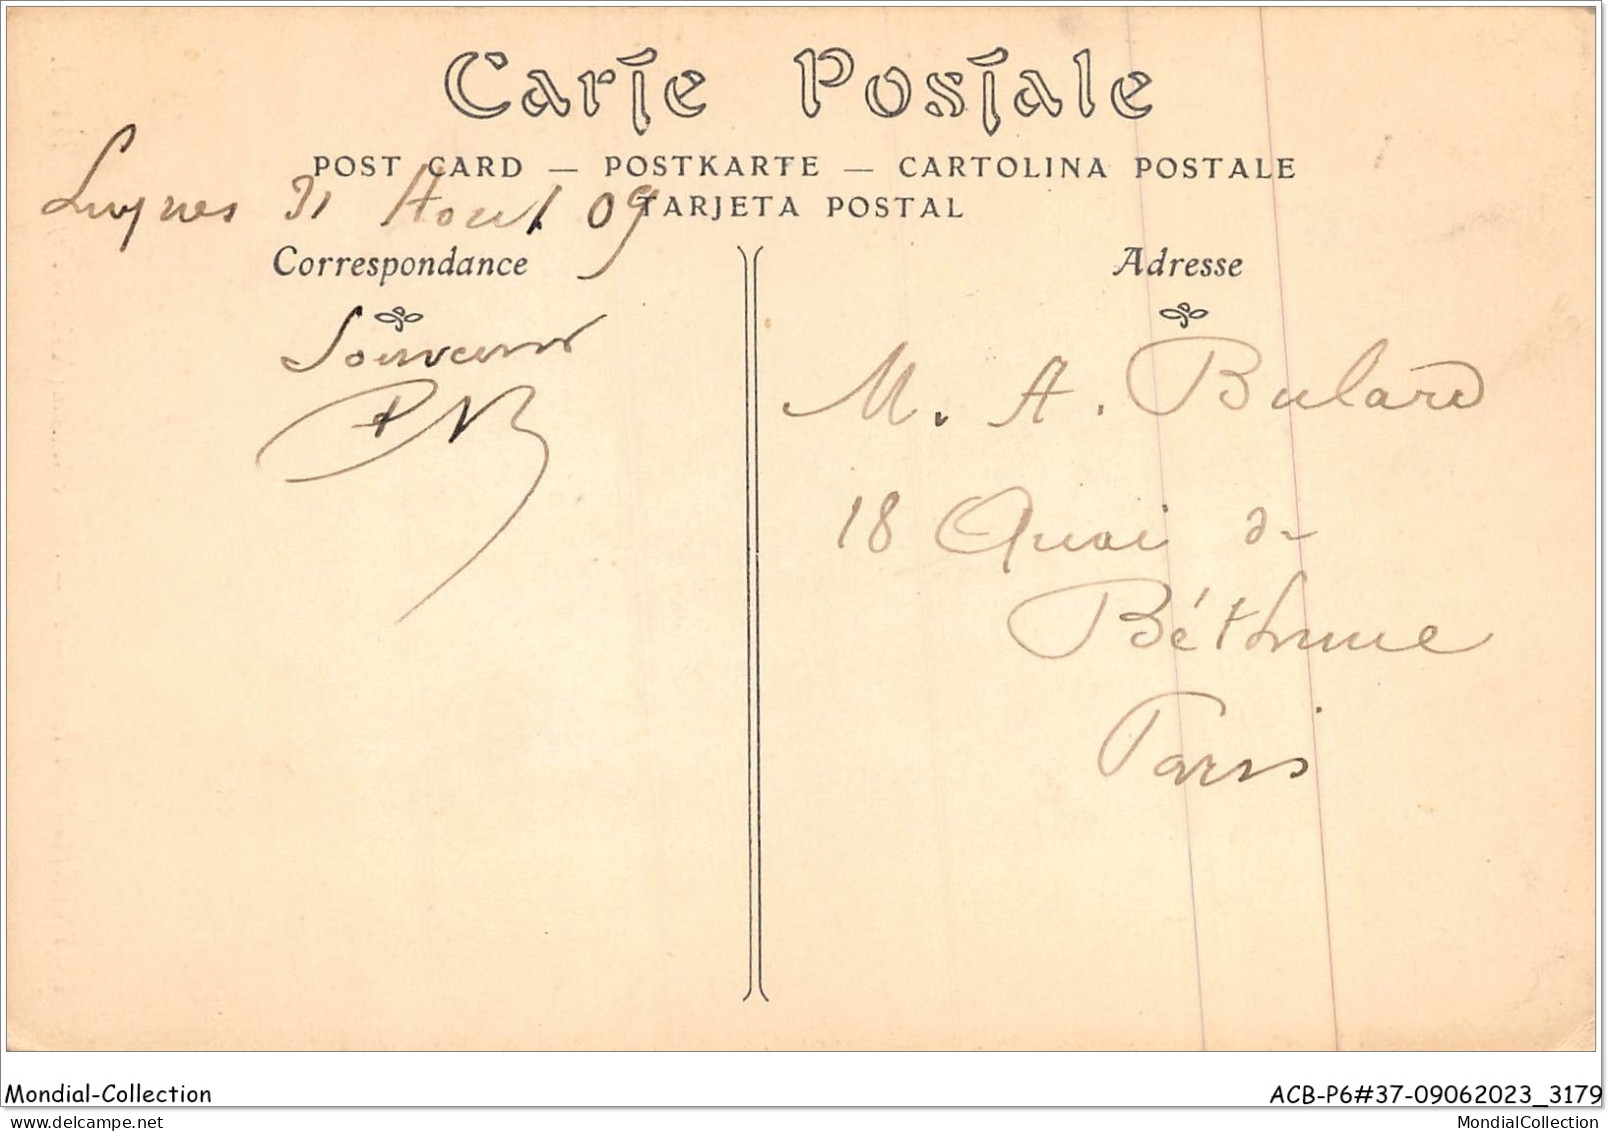 Carte Postale
POST CARD — POSTKARTE — CARTOLINA POSTALE
TARJETA POSTAL
Luynes 31 Aout 09
Correspondance
Souvenir
Adresse
M. A. Bulard
18 Quai de
Béthune
Paris
Mondial-Collection
ACB-P6#37-09062023_3179
MondialCollection
www.delcampe.net